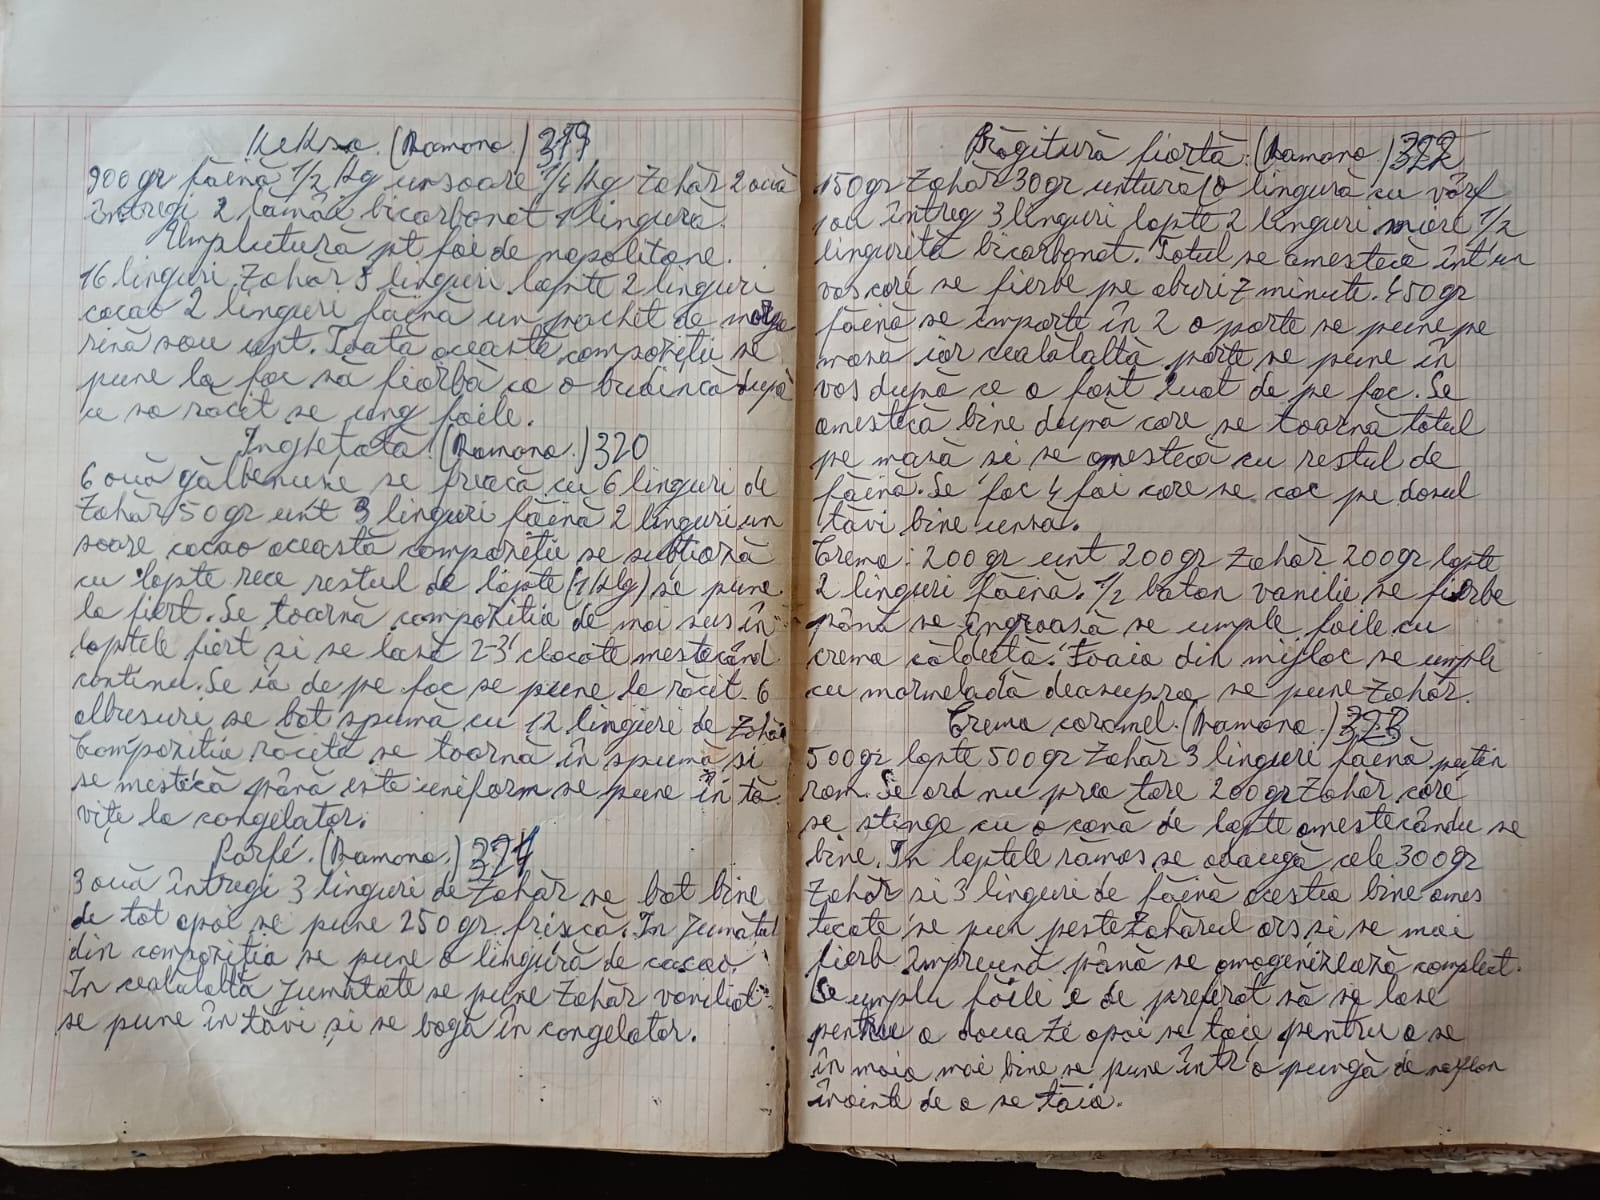 Kekse. (Ramona.) 319
900gr făină 1/2 Kg unsoare 1/4 Kg Zahăr 2 ouă
întregi 2 lămâi bicarbonat 1 lingură.
Umplutură pt foi de napolitane.
16 linguri Zahăr 3 linguri lapte 2 linguri
cacao 2 linguri făină un pachet de marga
rină sau unt. Toată aceaste compoziție se
pune la foc să fiarbă ca o budincă după
ce sa răcit se ung foile.
Inghețată (Ramona.) 320
6 ouă gălbenuse se freacă cu 6 linguri de
Zahăr 50gr unt 3 linguri făină 2 linguri un
soare cacao această compoziție se subțiază
cu lapte rece restul de lapte (1 Kg) se pune
la fiert. Se toarnă compozitia de mai sus în
laptele fiert si se lasă 2-3 clocote mestecând
continu. Se ia de pe foc se pune la răcit. 6
albusuri se bat spumă cu 12 linguri de Zahăr
Compozitia răcită se toarnă în spumă si
se mestecă până este uniform se pune în tă
vițe la congelator.
Parfé. (Ramona.) 321
3 ouă întregi 3 linguri de Zahăr se bat bine
de tot apoi se pune 250gr. frișcă. In Jumătat
din compoziția se pune o lingură de cacao.
In cealălaltă jumătate se pune Zahăr vaniliat
se pune în tăvi și se bagă în congelator.
Răgitură fiartă. (Ramona.) 322
150gr Zahăr 30gr untură (o lingură cu vârf
1 ou întreg 3 linguri lapte 2 linguri miere 1/2
lingurită bicarbonat. Totul se amestecă înt'un
vas care se fierbe pe aburi 7 minute. 450gr
făină se imparte în 2 o parte se pune pe
masă iar cealălaltă parte se pune în
vas după ce a fost luat de pe foc. Se
amestecă bine după care se toarnă totul
pe masă si se amestecă cu restul de
făină. Se fac 4 foi care se coc pe dosul
tăvi bine unsă.
Crema: 200gr unt 200gr Zahăr 200gr lapte
2 linguri făină. 1/2 baton vanilie se fierbe
până se îngroasă se umple foile cu
crema călduță. Foaia din mijloc se umple
cu marmeladă deasupra se pune Zahăr.
Crema caramel. (Ramona.) 323
500gr lapte 500gr Zahăr 3 linguri făină putin
rom. Se ard nu prea tare 200gr Zahăr care
se stinge cu o cană de lapte amestecându se
bine. In laptele rămas se adaugă cele 300gr
Zahăr si 3 linguri de făină acestia bine ames
tecate se pun peste Zahărul ars si se mai
fierb împreună până se omogenizează complect.
Se umplu foile e de preferat să se lase
pentru a doua zi apoi se taie pentru a se
în muia mai bine se pune într'o pungă de naylon
înainte de a se tăia.